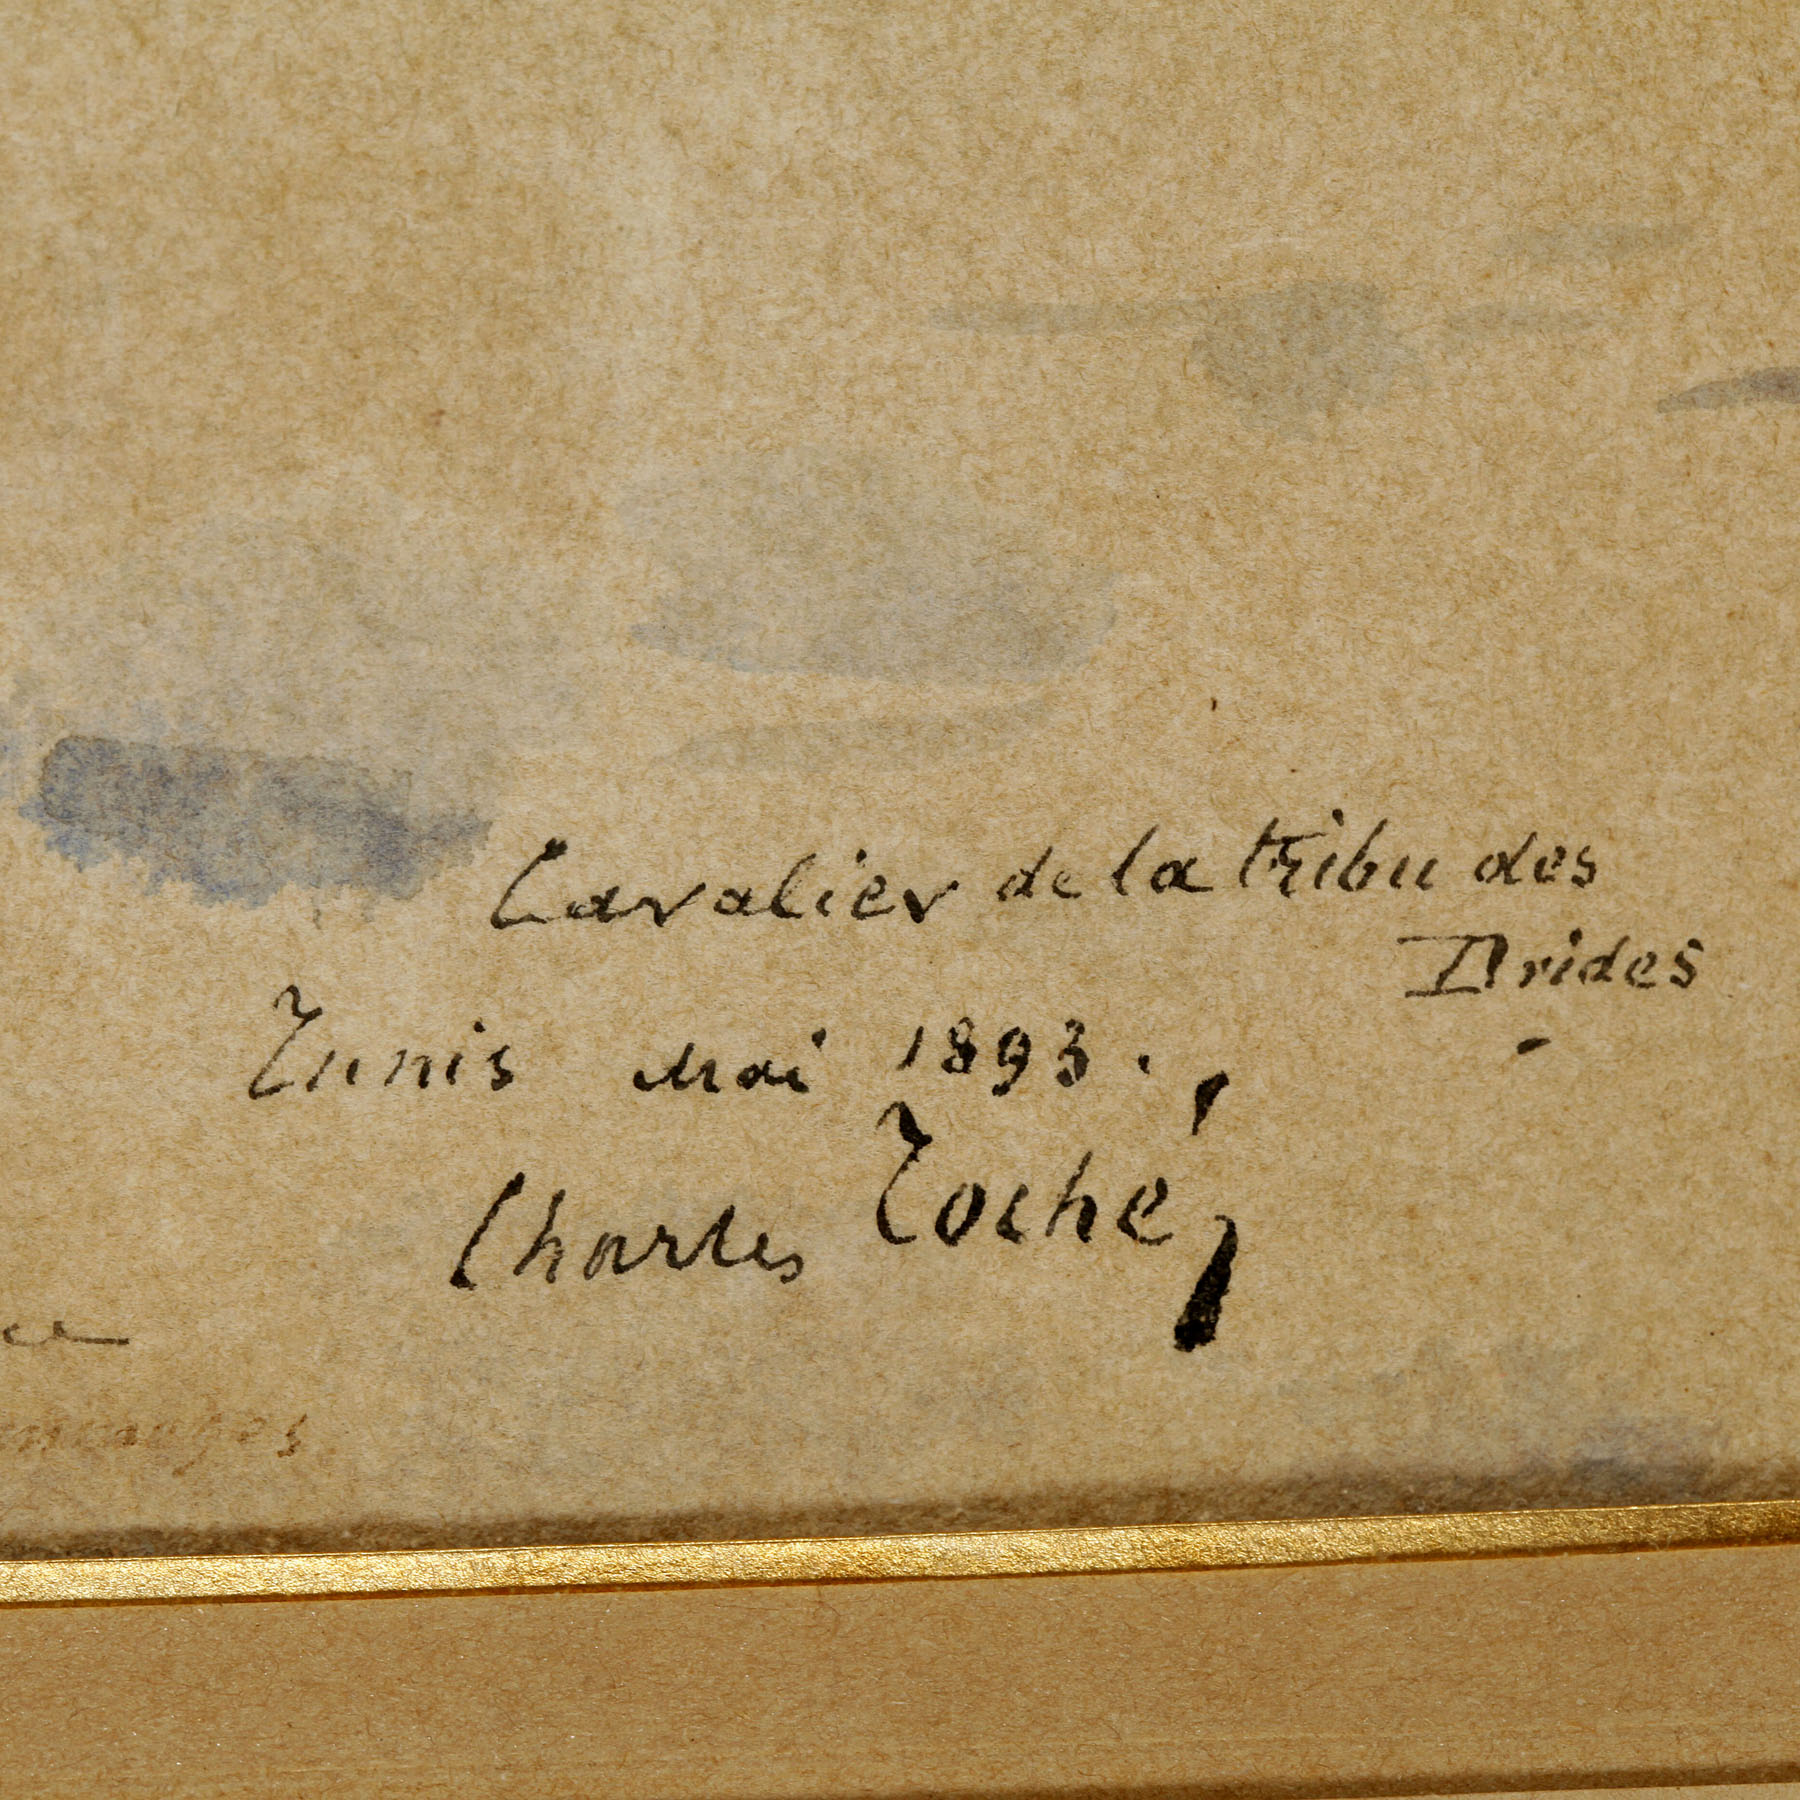 Cavalier de la tribu des
Drides
Tunis Mai 1893.
Charles Toché